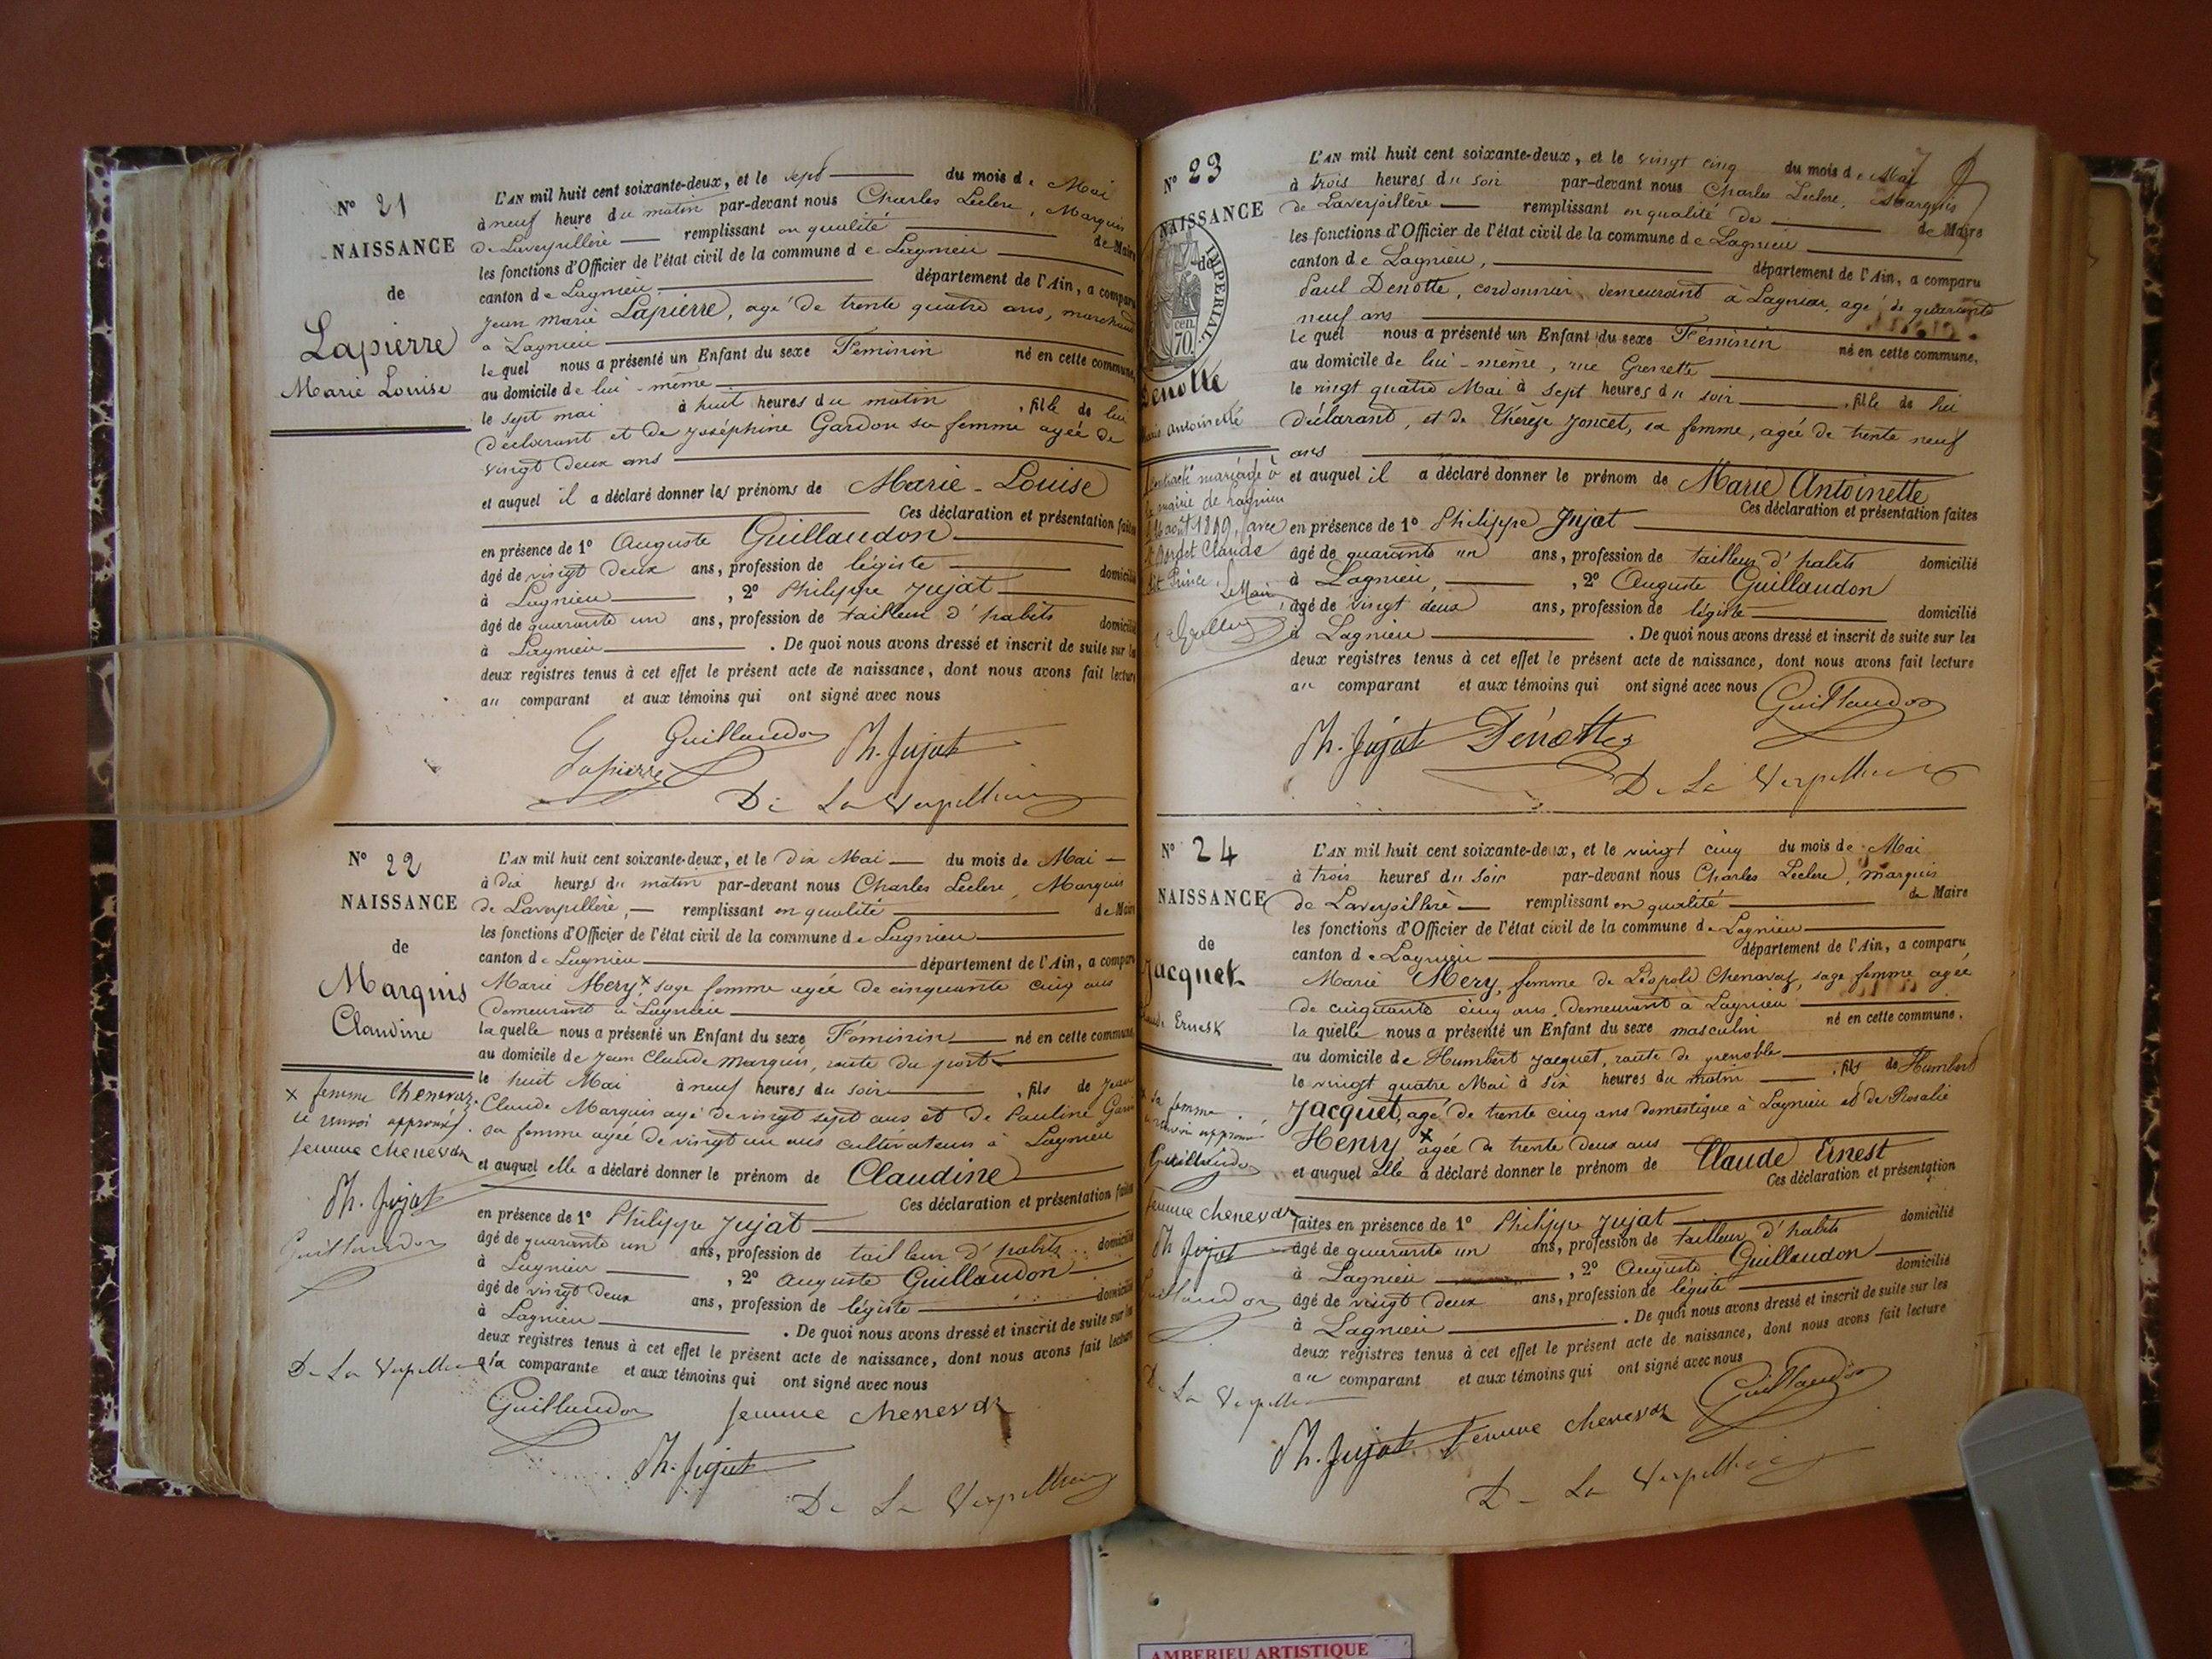 N° 21
NAISSANCE
de
Lapierre
Marie Louise
L'AN mil huit cent soixante-deux, et le sept du mois de Mai
à neuf heure du matin par-devant nous Charles Leclerc, Marquis
de Laverpillière remplissant en qualité de Maire
les fonctions d'Officier de l'état civil de la commune de Lagnieu
canton de Lagnieu département de l'Ain, a comparu
Jean Marie Lapierre, agé de trente quatre ans, marchand
à Lagnieu
lequel nous a présenté un Enfant du sexe Féminin né en cette commune,
au domicile de lui-même
le sept mai à huit heures du matin, fille de lui
déclarant et de Joséphine Gardon sa femme agée de
vingt deux ans
et auquel il a déclaré donner les prénoms de Marie-Louise
Ces déclaration et présentation faites
en présence de 1° Auguste Guillaudon
âgé de vingt deux ans, profession de légiste domicilié
à Lagnieu, 2° Philippe Jujat
âgé de quarante un ans, profession de tailleur d'habits domicilié
à Lagnieu. De quoi nous avons dressé et inscrit de suite sur les
deux registres tenus à cet effet le présent acte de naissance, dont nous avons fait lecture
au comparant et aux témoins qui ont signé avec nous
Guillaudon Ph. Jujat
Lapierre
De La Verpillière
N° 22
NAISSANCE
de
Marquis
Claudine
x femme Chenevaz.
ce renvoi approuvé.
femme chenevaz
Ph. Jujat
Guillaudon
De La Verpillière
L'AN mil huit cent soixante-deux, et le dix Mai du mois de Mai
à dix heures du matin par-devant nous Charles Leclerc, Marquis
de Laverpillière, remplissant en qualité de Maire
les fonctions d'Officier de l'état civil de la commune de Lagnieu
canton de Lagnieu département de l'Ain, a comparu
Marie Mery x sage femme agée de cinquante cinq ans
demeurant à Lagnieu
laquelle nous a présenté un Enfant du sexe Féminin né en cette commune,
au domicile de Jean Claude Marquis, route du port
le huit Mai à neuf heures du soir, fils de Jean
Claude Marquis agé de vingt sept ans et de Pauline
sa femme agée de vingt un ans cultivateurs à Lagnieu
et auquel elle a déclaré donner le prénom de Claudine
Ces déclaration et présentation faites
en présence de 1° Philippe Jujat
âgé de quarante un ans, profession de tailleur d'habits domicilié
à Lagnieu, 2° Auguste Guillaudon
âgé de vingt deux ans, profession de légiste domicilié
à Lagnieu. De quoi nous avons dressé et inscrit de suite sur les
deux registres tenus à cet effet le présent acte de naissance, dont nous avons fait lecture
à la comparante et aux témoins qui ont signé avec nous
Guillaudon femme chenevaz
Ph. Jujat
De La Verpillière
N° 23
NAISSANCE
de
IMPERIAL
70 cen.
Denotte
Marie Antoinette
Contracté mariage à
la mairie de Lagnieu
août 1889, avec
Claude
dit Prince. Le Maire,
L'AN mil huit cent soixante-deux, et le vingt cinq du mois de Mai
à trois heures du soir par-devant nous Charles Leclerc, Marquis
de Laverpillère remplissant en qualité de de Maire
les fonctions d'Officier de l'état civil de la commune de Lagnieu
canton de Lagnieu, département de l'Ain, a comparu
Paul Denotte, cordonnier demeurant à Lagnieu, agé de quarante
neuf ans
lequel nous a présenté un Enfant du sexe Féminin né en cette commune,
au domicile de lui-même, rue Grenette
le vingt quatre Mai à sept heures du soir, fille de lui
déclarant, et de Thérèse Joncet, sa femme, agée de trente neuf
ans
et auquel il a déclaré donner le prénom de Marie Antoinette
Ces déclaration et présentation faites
en présence de 1° Philippe Jujat
âgé de quarante un ans, profession de tailleur d'habits domicilié
à Lagnieu, 2° Auguste Guillaudon
âgé de vingt deux ans, profession de légiste domicilié
à Lagnieu. De quoi nous avons dressé et inscrit de suite sur les
deux registres tenus à cet effet le présent acte de naissance, dont nous avons fait lecture
au comparant et aux témoins qui ont signé avec nous
Guillaudon
Ph. Jujat Dénotte
De La Verpillière
N° 24
NAISSANCE
de
Jacquet
Claude Ernest
x sa femme.
ce renvoi approuvé
Guillaudon
femme chenevaz
Ph Jujat
Guillaudon
De La Verpillière
L'AN mil huit cent soixante-deux, et le vingt cinq du mois de Mai
à trois heures du soir par-devant nous Charles Leclerc, marquis
de Laverpillère remplissant en qualité de Maire
les fonctions d'Officier de l'état civil de la commune de Lagnieu
canton de Lagnieu département de l'Ain, a comparu
Marie Mery, femme de Léopold Chenavaz, sage femme agée
de cinquante cinq ans, demeurant à Lagnieu
laquelle nous a présenté un Enfant du sexe masculin né en cette commune,
au domicile de Humbert Jacquet, route de grenoble
le vingt quatre Mai à six heures du matin, fils de Humbert
Jacquet, agé de trente cinq ans domestique à Lagnieu et de Rosalie
Henry x agée de trente deux ans
et auquel elle a déclaré donner le prénom de Claude Ernest
Ces déclaration et présentation
faites en présence de 1° Philippe Jujat
âgé de quarante un ans, profession de tailleur d'habits domicilié
à Lagnieu, 2° Auguste Guillaudon
âgé de vingt deux ans, profession de légiste domicilié
à Lagnieu. De quoi nous avons dressé et inscrit de suite sur les
deux registres tenus à cet effet le présent acte de naissance, dont nous avons fait lecture
au comparant et aux témoins qui ont signé avec nous
Guillaudon
Ph. Jujat femme chenevaz
De La Verpillière
AMBERIEU ARTISTIQUE